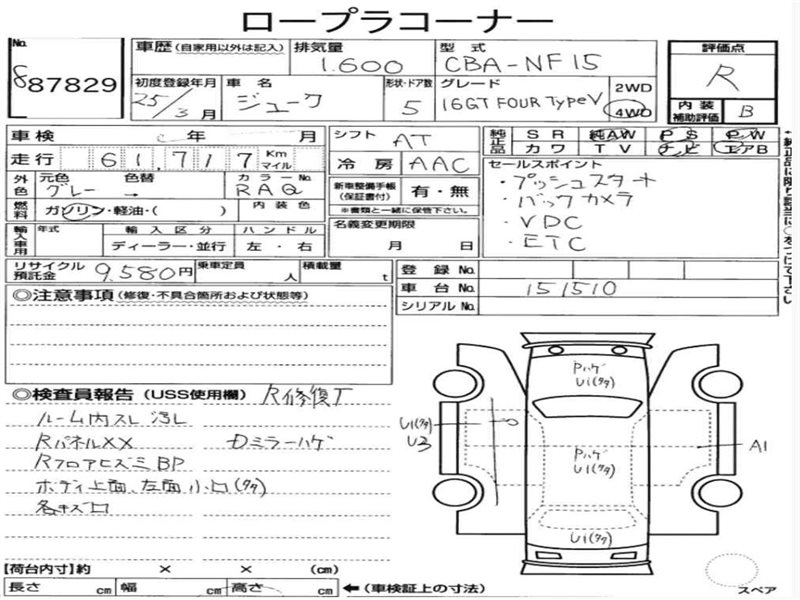 ロープラコーナー
No. 87829
車歴 (自家用以外は記入) 排気量 1.600 型式 CBA-NF15 評価点 R
初度登録年月 25/3月 車名 ジューク 形状・ドア数 5 グレード 16GT FOUR TypeV 2WD 4WD 内装補助評価 B
車検 年 月 シフト AT 純正品 SR 純AW PS PW
カワ TV ナビ エアB
走行 61,717 Km マイル 冷房 AAC セールスポイント
外色 元色 グレー 色替 → カラーNo. RAQ 新車整備手帳(保証書付) 有・無 ・プッシュスタート
※書類と一緒に保管下さい。 ・バックカメラ
燃料 ガソリン・軽油・( ) 内装色 名義変更期限 ・VDC
輸入車用 年式 輸入区分 ハンドル 月 日 ・ETC
ディーラー・並行 左・右
リサイクル預託金 9.580円 乗車定員 人 積載量 t 登録No.
車台No. 151510
シリアルNo.
◎注意事項 (修復・不具合箇所および状態等)
◎検査員報告 (USS使用欄) R修復丁
ルーム内スレ汚レ
Rパネル××
ミラーハゲ
RフロアヒズミBP
ボディ上面、左面小口(タタ)
各キズ口
Pハゲ
U1(タタ)
U1(タタ)
U3
Pハゲ
U1(タタ)
A1
U1(タタ)
【荷台内寸】約 × × (cm)
長さ cm 幅 cm 高さ cm ←(車検証上の寸法)
スペア